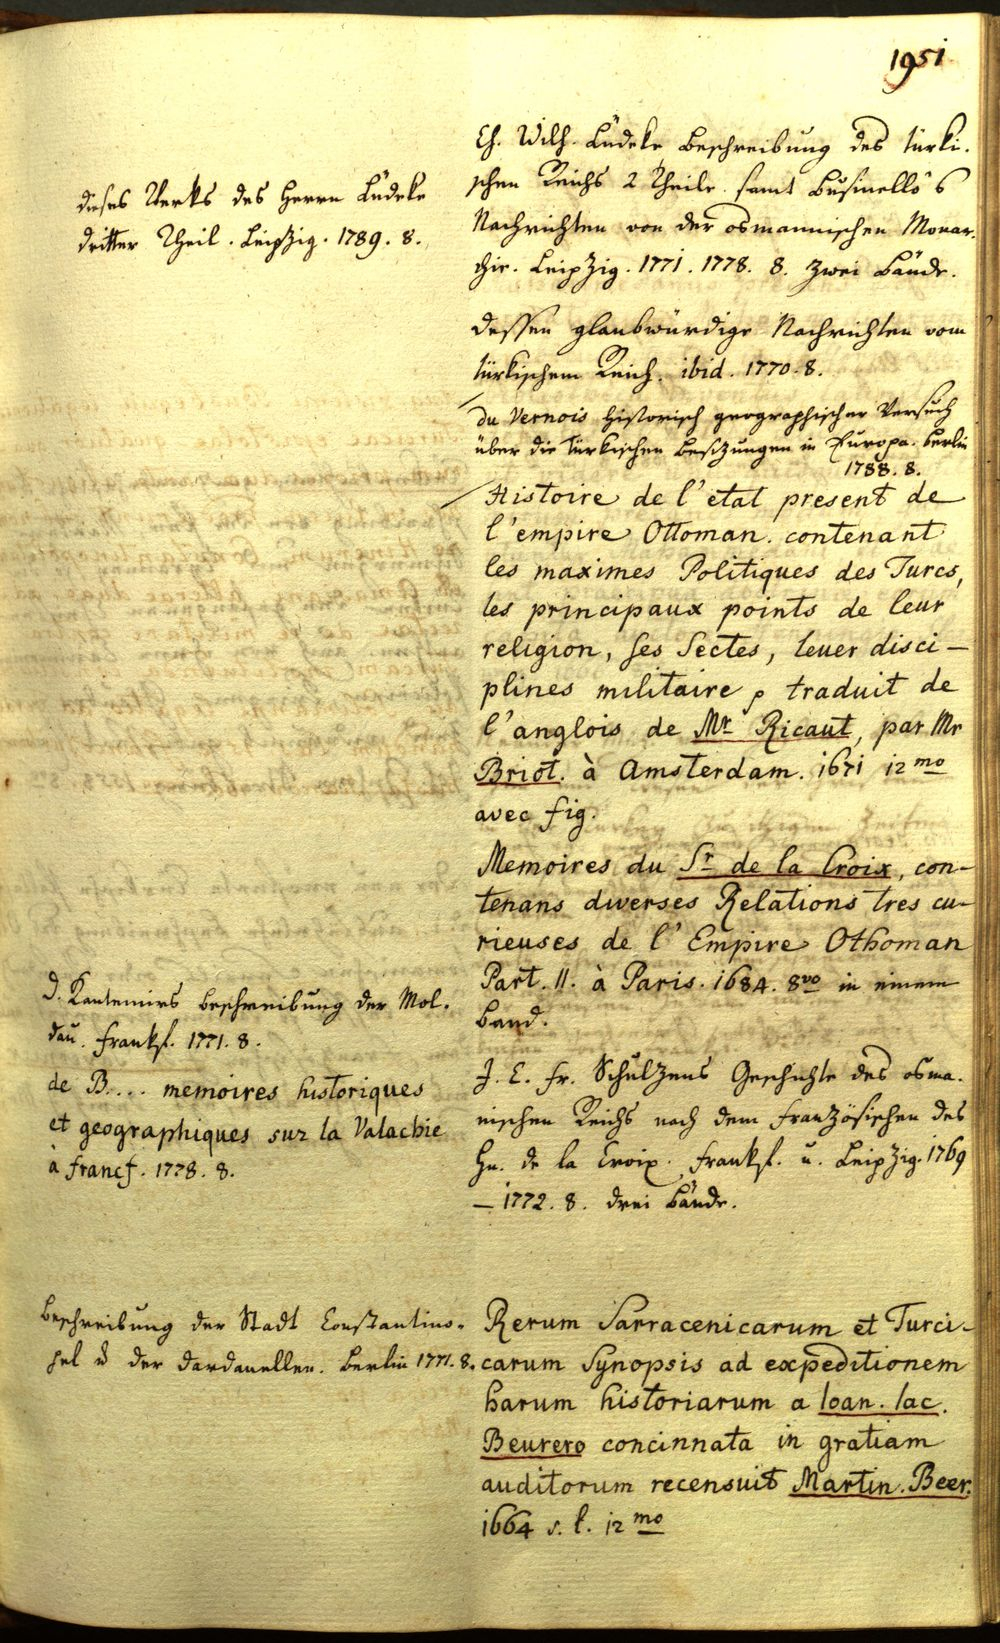 1951
Ch. Wilh. Lüdeke Beschreibung des türki-
schen Reichs 2 Theile. samt Businello's
Nachrichten von der osmannischen Monar-
chie. Leipzig. 1771. 1778. 8. zwei Bände.
dessen glaubwürdige Nachrichten vom
türkischem Reich. ibid. 1770. 8.
du Vernois historisch geographischer Versuch
über die türkischen Besitzungen in Europa. Berlin
1788. 8.
Histoire de l'etat present de
l'empire Ottoman. contenant
les maximes Politiques des Turcs,
les principaux points de leur
religion, ses Sectes, leuer disci-
plines militaire, traduit de
l'anglois de Mr Ricaut, par Mr
Briot. à Amsterdam. 1671 12mo
avec fig.
Memoires du Sr de la Croix, con-
tenans diverses Relations tres cu-
rieuses de l'Empire Othoman
Part. II. à Paris. 1684. 8vo in einem
Band.
J. E. Fr. Schulzens Geschichte des osma-
nischen Reichs nach dem französischen des
Hn. de la Croix. Frankf. u. Leipzig. 1769
– 1772. 8. drei Bände.
Rerum Sarracenicarum et Turci-
carum Synopsis ad expeditionem
harum historiarum a Ioan. Iac.
Beurero concinnata in gratiam
auditorum recensuit Martin. Beer.
1664 s. l. 12mo
dieses Werks des Herrn Lüdeke
dritter Theil. Leipzig. 1789. 8.
D. Kantemirs Beschreibung der Mol-
dau. Frankf. 1771. 8.
de B.... memoires historiques
et geographiques sur la Valachie
à Francf. 1778. 8.
Beschreibung der Stadt Constantino-
pel u der Dardanellen. Berlin 1771. 8.